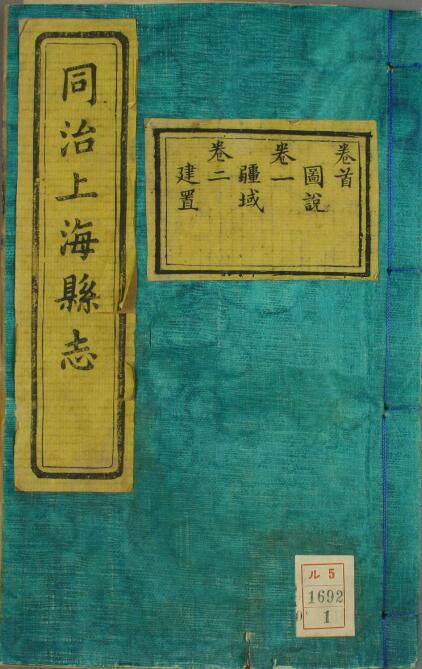 同治上海縣志
卷首
圖說
卷一
疆域
卷二
建置
ル 5
1692
1